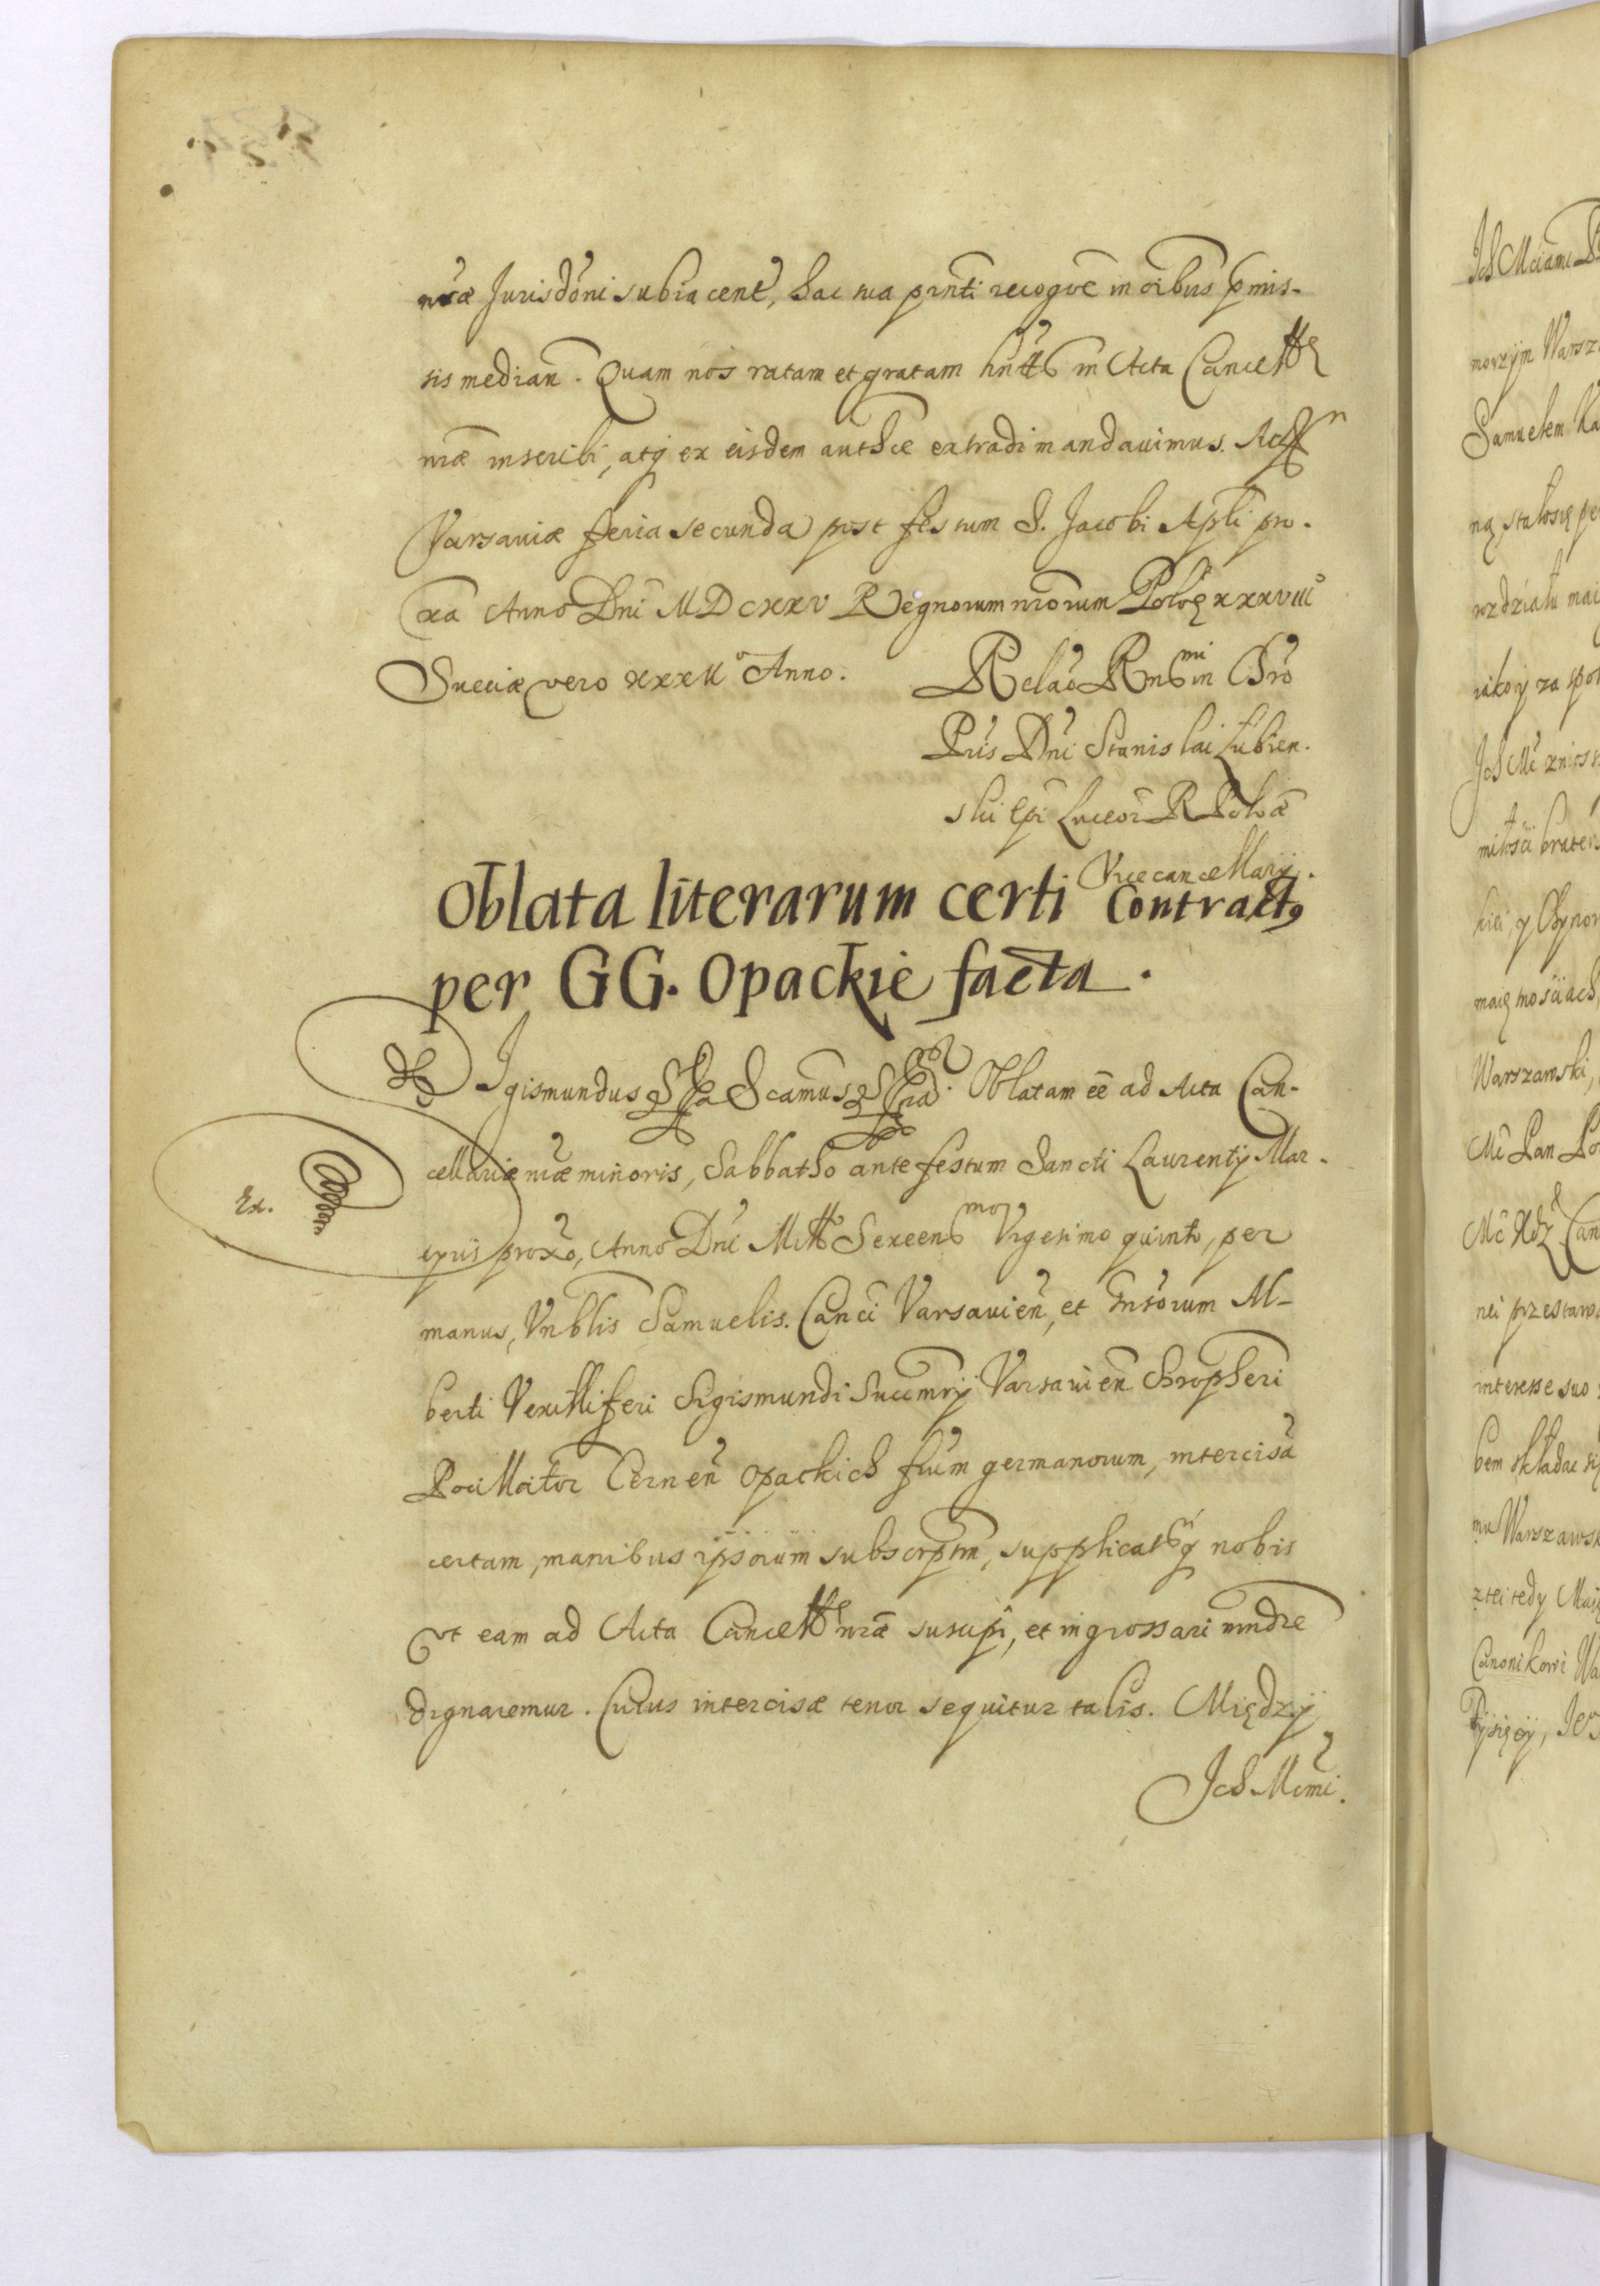 nræ Jurisdoni subiacent, hac sua prnti recogne in oibus pmis-
sis median. Quam nos ratam et gratam hntes in Acta Cancell
nræ inscribi, atq ex eisdem authce extradi mandavimus. Actn
Varsaviæ feria secunda post festum S. Jacobi Apli pro-
xa Anno Dni MDCXXV Regnorum nrorum Polo XXXVIII
Sueciæ vero XXXII Anno.
Relao Rnsmi in Chro
Pris Dni Stanislai Lubien-
skii Epi Luceor R Polo
Vicecancellarij.
Oblata literarum certi Contract9
per GG. Opackie facta.
Sigismundus Oblatam ee ad Acta Can-
cellariæ nræ minoris, Sabbatho ante festum Sancti Laurentij Mar-
tyris proxo, Anno Dni Mill Sexcensmo Vigesimo quinto, per
manus, Vnblis Samuelis. Canci Varsavien, et Gnsorum Al-
berti Vexilliferi Sigismundi Succmrij Varsavien Chropheri
Pocillator Cernen Opackich frum germanorum, intercisa
certam, manibus ipsorum subscrptm, supplicatq nobis
vt eam ad Acta Cancell nræ suscipi, et ingrossari mndre
dignaremur. Cuius intercisæ tenor sequitur talis. Między
Ich Mcmi.
Ex.
Ich Mciami
morzÿm Warsz
Samuelem Ka
ną stałosię pe
rozdziału mai
Ich Mc znios
miłości brater
maiętnosciach,
Warszawski,
Mc Pan Po
Mc Xdz Can
nei przestaw
interesse suo
bem składac się
mu Warszawsk
ztei tedy Mai
Canonikowi Wa
Tÿsięcÿ,